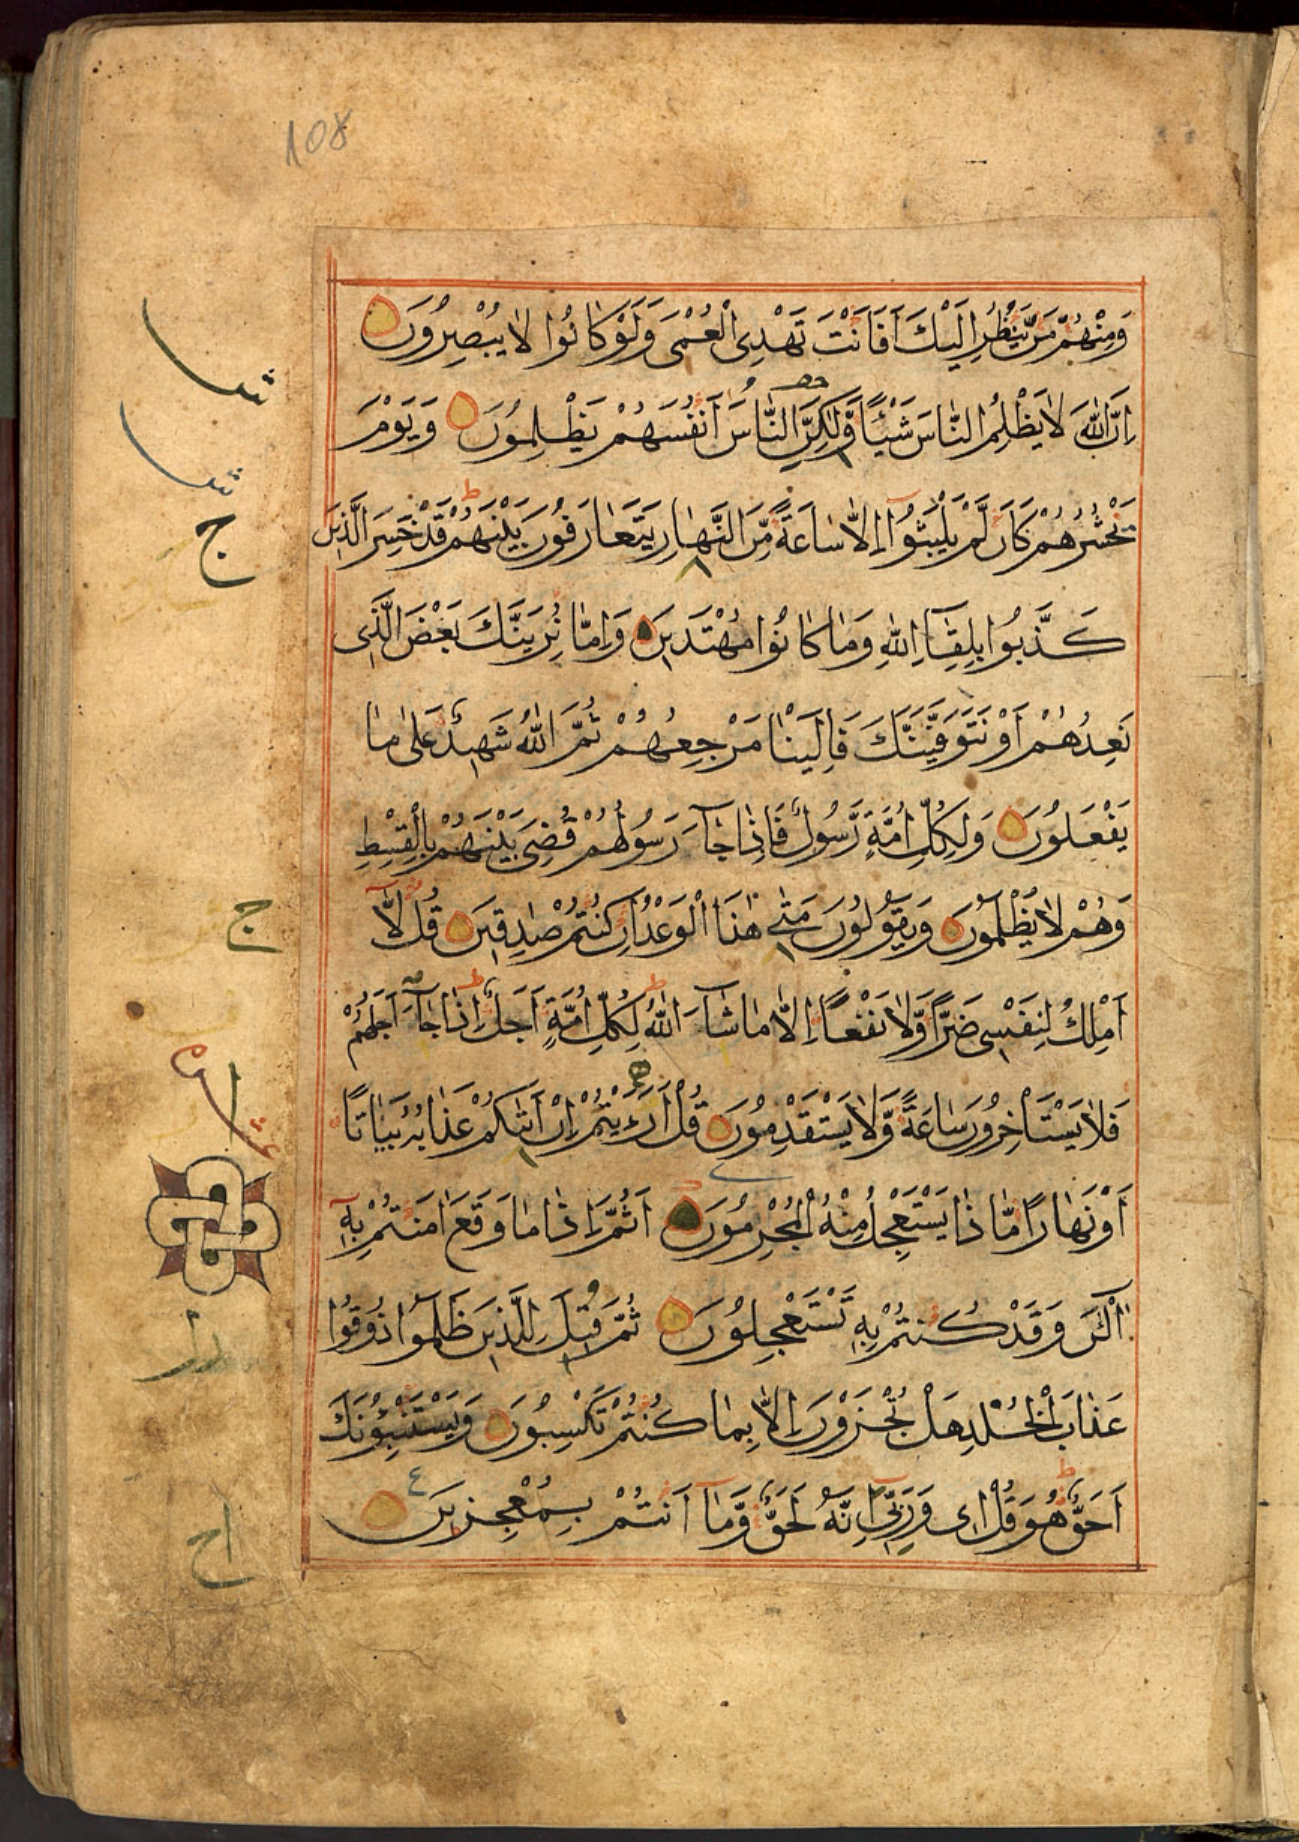 108
وَمِنْهُمْ مَنْ يَنْظُرُ اِلَيْكَ اَفَاَنْتَ تَهْدِى الْعُمْىَ وَلَوْ كَانُوا لَا يُبْصِرُونَ
اِنَّ اللّٰهَ لَا يَظْلِمُ النَّاسَ شَيْئًا وَّلٰكِنَّ النَّاسَ اَنْفُسَهُمْ يَظْلِمُونَ وَيَوْمَ
نَحْشُرُهُمْ كَاَنْ لَّمْ يَلْبَثُوٓا اِلَّا سَاعَةً مِّنَ النَّهَارِ يَتَعَارَفُونَ بَيْنَهُمْ قَدْ خَسِرَ الَّذِينَ
كَذَّبُوا بِلِقَآءِ اللّٰهِ وَمَا كَانُوا مُهْتَدِينَ وَاِمَّا نُرِيَنَّكَ بَعْضَ الَّذِى
نَعِدُهُمْ اَوْ نَتَوَفَّيَنَّكَ فَاِلَيْنَا مَرْجِعُهُمْ ثُمَّ اللّٰهُ شَهِيدٌ عَلٰى مَا
يَفْعَلُونَ وَلِكُلِّ اُمَّةٍ رَّسُولٌ فَاِذَا جَآءَ رَسُولُهُمْ قُضِىَ بَيْنَهُمْ بِالْقِسْطِ
وَهُمْ لَا يُظْلَمُونَ وَيَقُولُونَ مَتٰى هٰذَا الْوَعْدُ اِنْ كُنْتُمْ صٰدِقِينَ قُلْ لَّآ
اَمْلِكُ لِنَفْسِى ضَرًّا وَّلَا نَفْعًا اِلَّا مَا شَآءَ اللّٰهُ لِكُلِّ اُمَّةٍ اَجَلٌ اِذَا جَآءَ اَجَلُهُمْ
فَلَا يَسْتَاْخِرُونَ سَاعَةً وَّلَا يَسْتَقْدِمُونَ قُلْ اَرَءَيْتُمْ اِنْ اَتٰىكُمْ عَذَابُهُ بَيَاتًا
اَوْ نَهَارًا مَّاذَا يَسْتَعْجِلُ مِنْهُ الْمُجْرِمُونَ اَثُمَّ اِذَا مَا وَقَعَ اٰمَنْتُمْ بِهِ
آٰلْـٰٔنَ وَقَدْ كُنْتُمْ بِهِ تَسْتَعْجِلُونَ ثُمَّ قِيلَ لِلَّذِينَ ظَلَمُوا ذُوقُوا
عَذَابَ الْخُلْدِ هَلْ تُجْزَوْنَ اِلَّا بِمَا كُنْتُمْ تَكْسِبُونَ وَيَسْتَنْبِئُونَكَ
اَحَقٌّ هُوَ قُلْ اِى وَرَبِّى اِنَّهُ لَحَقٌّ وَّمَآ اَنْتُمْ بِمُعْجِزِينَ